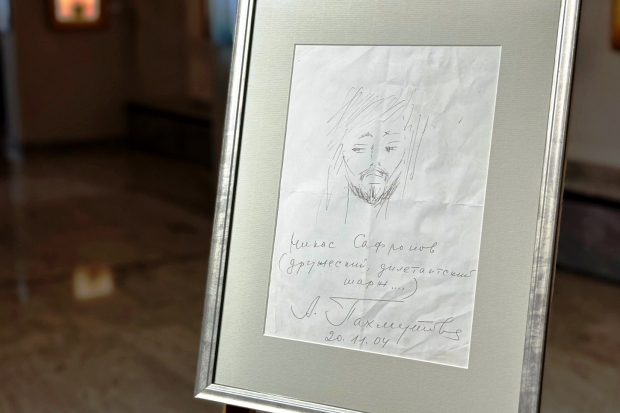 Никас Сафронов
(дружеский, дилетантский
шарж....)
А. Пахмутова
20.11.04